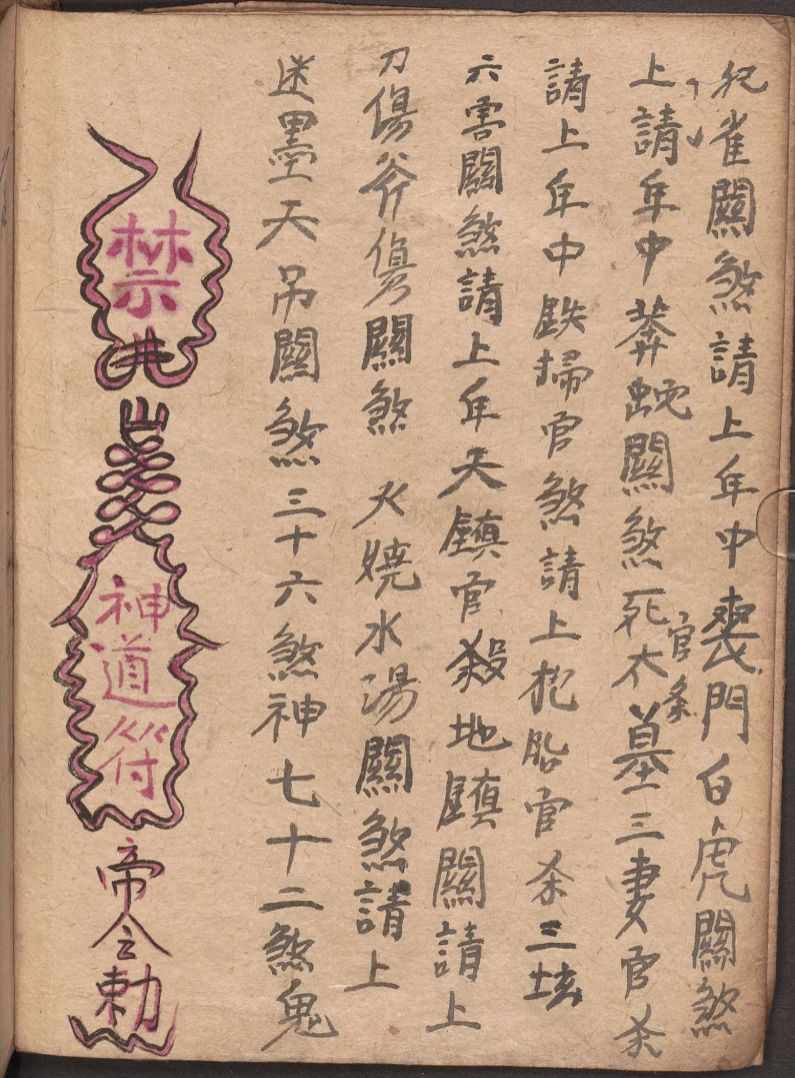 雀關煞請上年中喪門白虎關煞
上請年中莽蛇關煞死木墓三妻官杀
官杀
請上年中鉄掃官煞請上抱胎官杀三
六害關煞請上年天鎮官殺地鎮關請上
刀傷斧傷關煞 火燒水湯關煞請上
迷墨天吊關煞三十六煞神七十二煞鬼
禁井
神道符
帝令勅